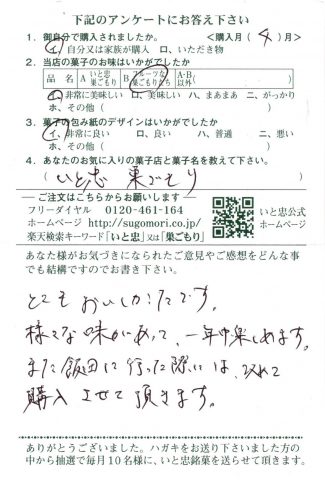 下記のアンケートにお答え下さい
1. 御自分で購入されましたか。 <購入月( 4 )月>
イ、自分又は家族が購入 ロ、いただき物
2. 当店の菓子のお味はいかがでしたか
品 名 A いと忠 巣ごもり B フルーツな 巣ごもりたち A・B 以外
イ、非常に美味しい ロ、美味しい ハ、まあまあ ニ、がっかり
ホ、その他( )
3. 菓子の包み紙のデザインはいかがでしたか
イ、非常に良い ロ、良い ハ、普通 ニ、悪い
ホ、その他( )
4. あなたのお気に入りの菓子店と菓子名を教えて下さい。
( いと忠 巣ごもり )
ご注文はこちらからお願いします
フリーダイヤル 0120-461-164
ホームページ http://sugomori.co.jp/
楽天検索キーワード「いと忠」又は「巣ごもり」
いと忠公式
ホームページ
あなた様がお気づきになられたご意見やご感想をどんな事
でも結構ですのでお書き下さい。
とてもおいしかったです。
様々な味があって、一年中楽しめます。
また飯田に行った際には、忘れて
購入させて頂きます。
ありがとうございました。ハガキをお送り下さいました方の
中から抽選で毎月10名様に、いと忠銘菓を送らせて頂きます。